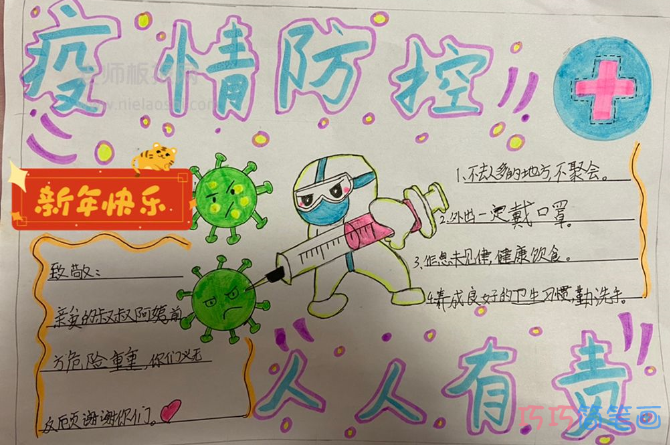 疫情防控
新年快乐
致敬:
亲爱的叔叔阿姨前
方危险重重,你们义无
反顾谢谢你们。
1、不去人多的地方不聚会。
2、外出一定戴口罩。
3、作息规律,健康饮食。
4、养成良好的卫生习惯,勤洗手。
人人有责
巧巧简笔画